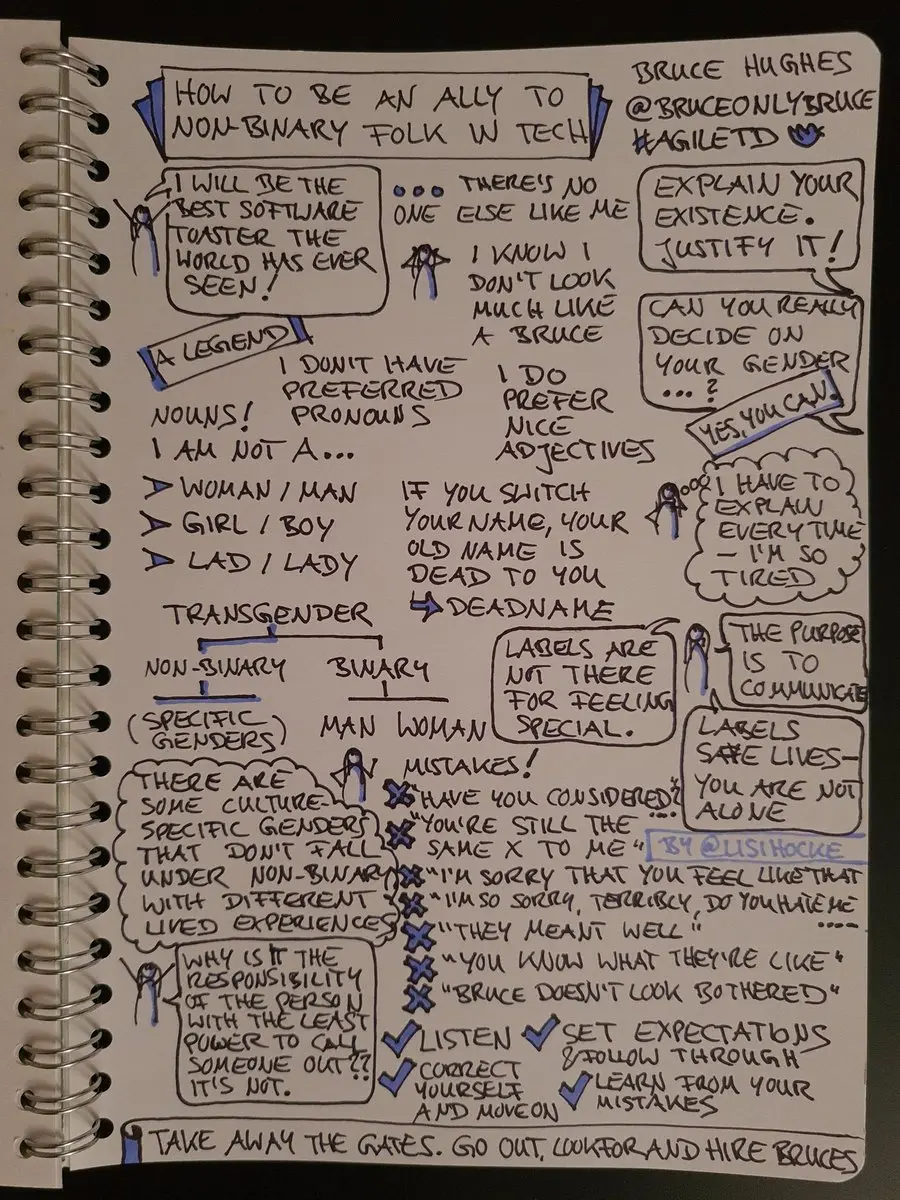 HOW TO BE AN ALLY TO
NON-BINARY FOLK IN TECH
BRUCE HUGHES
@BRUCEONLYBRUCE
#AGILETD
I WILL BE THE
BEST SOFTWARE
TOASTER THE
WORLD HAS EVER
SEEN!
... THERE'S NO
ONE ELSE LIKE ME
I KNOW I
DON'T LOOK
MUCH LIKE
A BRUCE
EXPLAIN YOUR
EXISTENCE.
JUSTIFY IT!
CAN YOU REALLY
DECIDE ON
YOUR GENDER
...?
YES, YOU CAN.
A LEGEND
I DON'T HAVE
PREFERRED
PRONOUNS
I DO
PREFER
NICE
ADJECTIVES
NOUNS!
I AM NOT A...
WOMAN / MAN
GIRL / BOY
LAD / LADY
IF YOU SWITCH
YOUR NAME, YOUR
OLD NAME IS
DEAD TO YOU
DEADNAME
I HAVE TO
EXPLAIN
EVERY TIME
– I'M SO
TIRED
TRANSGENDER
NON-BINARY
BINARY
(SPECIFIC
GENDERS)
MAN WOMAN
LABELS ARE
NOT THERE
FOR FEELING
SPECIAL.
THE PURPOSE
IS TO
COMMUNICATE
LABELS
SAVE LIVES–
YOU ARE NOT
ALONE
THERE ARE
SOME CULTURE-
SPECIFIC GENDERS
THAT DON'T FALL
UNDER NON-BINARY
WITH DIFFERENT
LIVED EXPERIENCES
MISTAKES!
"HAVE YOU CONSIDERED?"
....
"YOU'RE STILL THE
SAME X TO ME"
BY @LISIHOCKE
"I'M SORRY THAT YOU FEEL LIKE THAT
"I'M SO SORRY, TERRIBLY, DO YOU HATE ME
....
"THEY MEANT WELL"
"YOU KNOW WHAT THEY'RE LIKE"
"BRUCE DOESN'T LOOK BOTHERED"
WHY IS IT THE
RESPONSIBILITY
OF THE PERSON
WITH THE LEAST
POWER TO CALL
SOMEONE OUT??
IT'S NOT.
LISTEN
SET EXPECTATIONS
& FOLLOW THROUGH
CORRECT
YOURSELF
AND MOVE ON
LEARN FROM YOUR
MISTAKES
TAKE AWAY THE GATES. GO OUT, LOOK FOR AND HIRE BRUCES